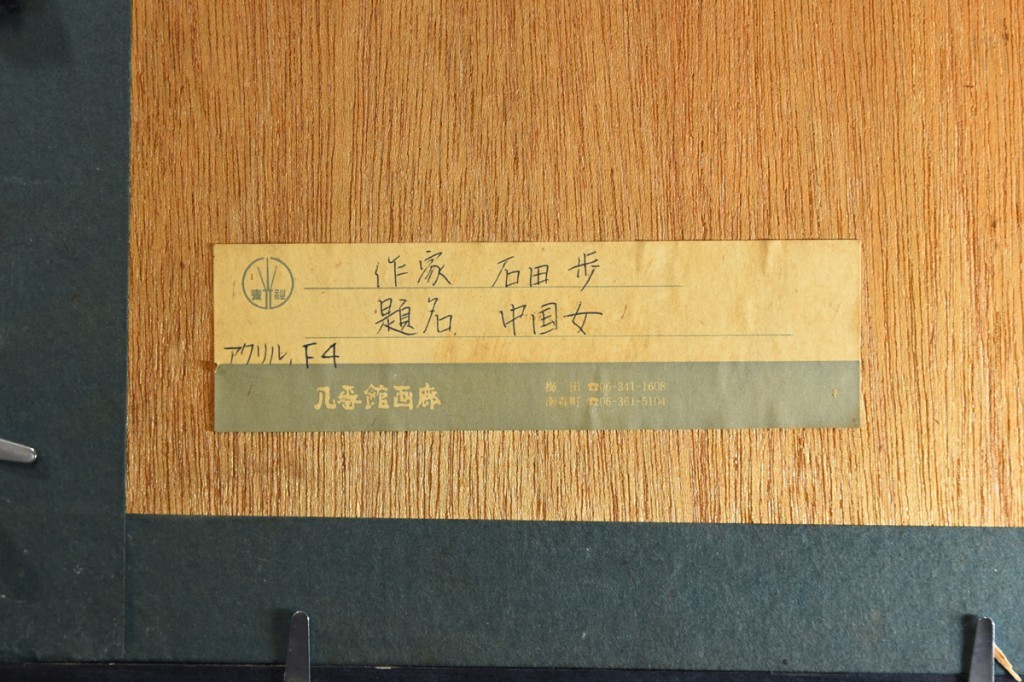 作家 石田 歩
題名 中国女
アクリル, F4
八番館画廊
梅田 ☎06-341-1608
南森町 ☎06-361-5104